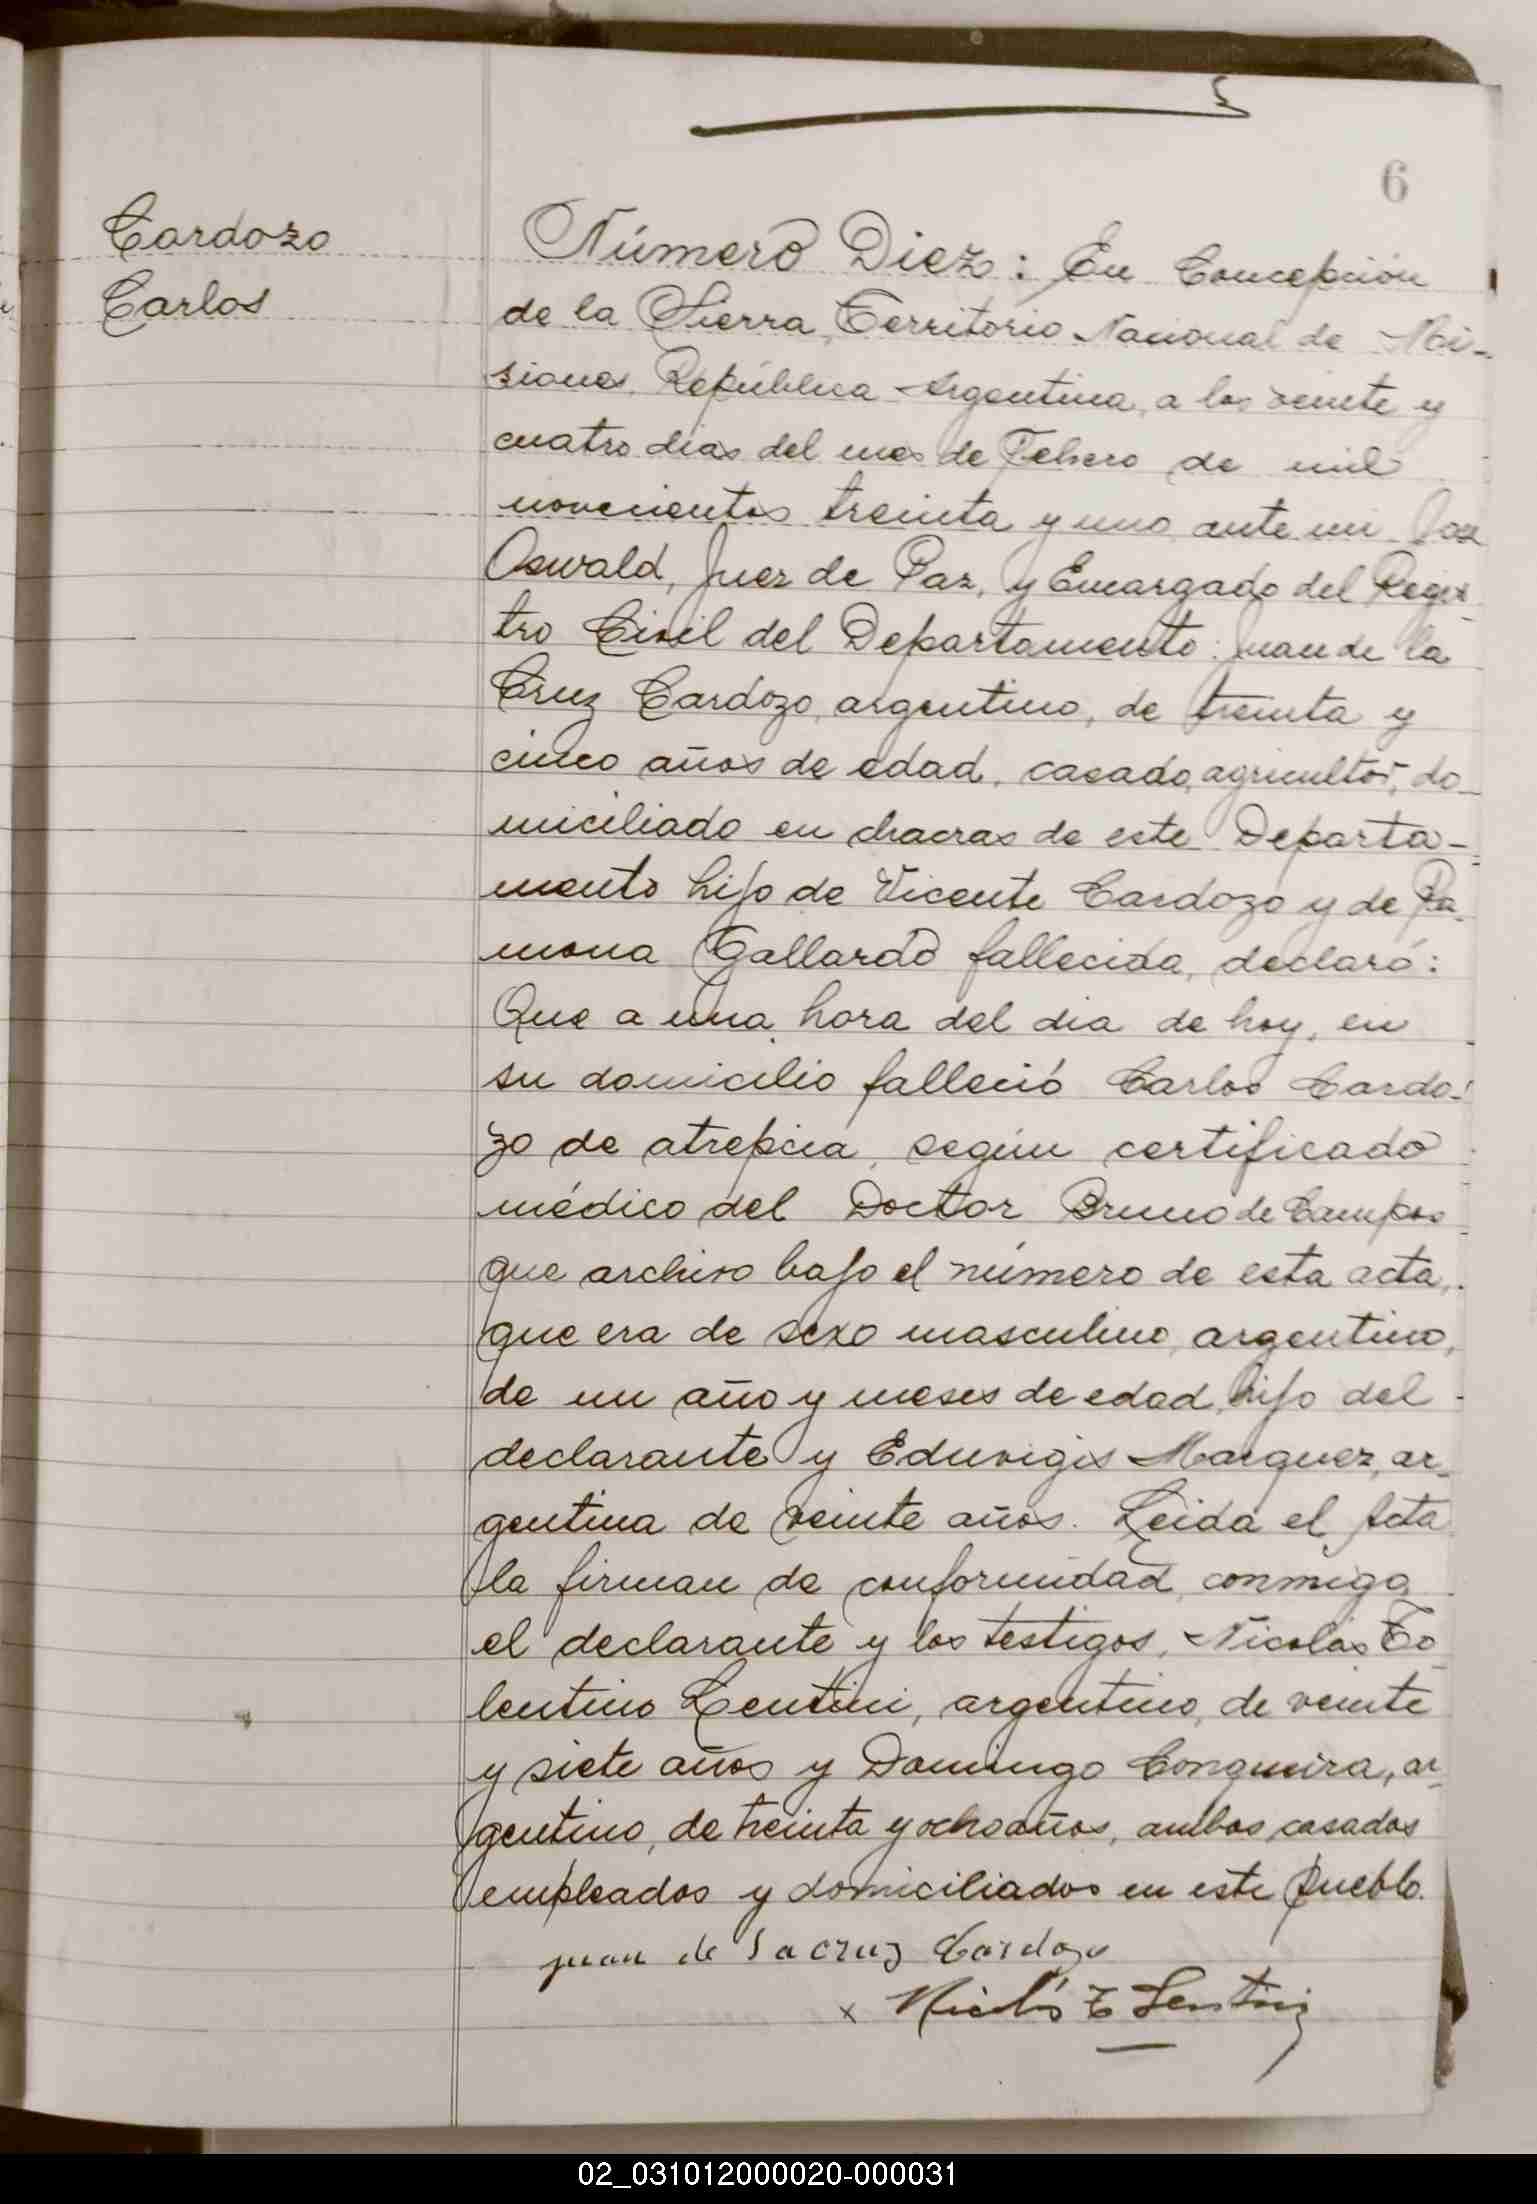 6
Cardozo
Carlos
Número Diez: En Concepción
de la Sierra, Territorio Nacional de Mi-
siones, República Argentina, a los veinte y
cuatro dias del mes de Febrero de mil
novecientos treinta y uno, ante mi José
Oswald, Juez de Paz, y Encargado del Regis
tro Civil del Departamento: Juan de la
Cruz Cardozo, argentino, de treinta y
cinco años de edad, casado, agricultor, do-
miciliado en chacras de este Departa-
mento hijo de Vicente Cardozo y de Ra-
mona Gallardo fallecida, declaró:
Que a una hora del dia de hoy, en
su domicilio falleció Carlos Cardo-
zo de atrepcia, según certificado
médico del Doctor Bruno de Campos
que archivo bajo el número de esta acta,
que era de sexo masculino, argentino,
de un año y meses de edad, hijo del
declarante y Eduvigis Marquez, ar-
gentina de veinte años. Leida el Acta
la firman de conformidad, conmigo
el declarante y los testigos, Nicolás To
lentino Lentini, argentino, de veinte
y siete años y Domingo Conqueira, ar-
gentino, de treinta y ocho años, ambos casados
empleados y domiciliados en este Pueblo.
juan de la cruz Cardozo
x Nicolás T Lentini
02_031012000020-000031